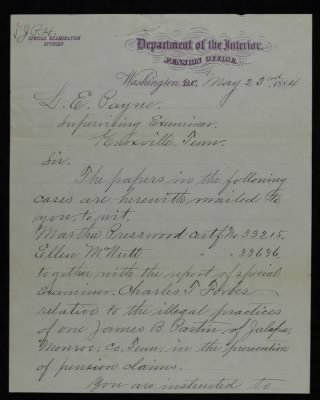 J.P.H.
SPECIAL EXAMINATION
DIVISION
Department of the Interior,
PENSION OFFICE,
Washington, D.C. May 23rd, 1884
L. E. Payne,
Supervising Examiner.
Knoxville Tenn.
Sir.
The papers in the following
cases are herewith mailed to
you, to wit.
Martha Presswood Certf No 33215,
Ellen McNutt " " 33636
together with the report of special
Examiner, Charles T Forbes
relative to the illegal practices
of one James B. Partin, of Jalapa,
Monroe, Co, Tenn, in the prosecution
of pension claims.
You are instructed to